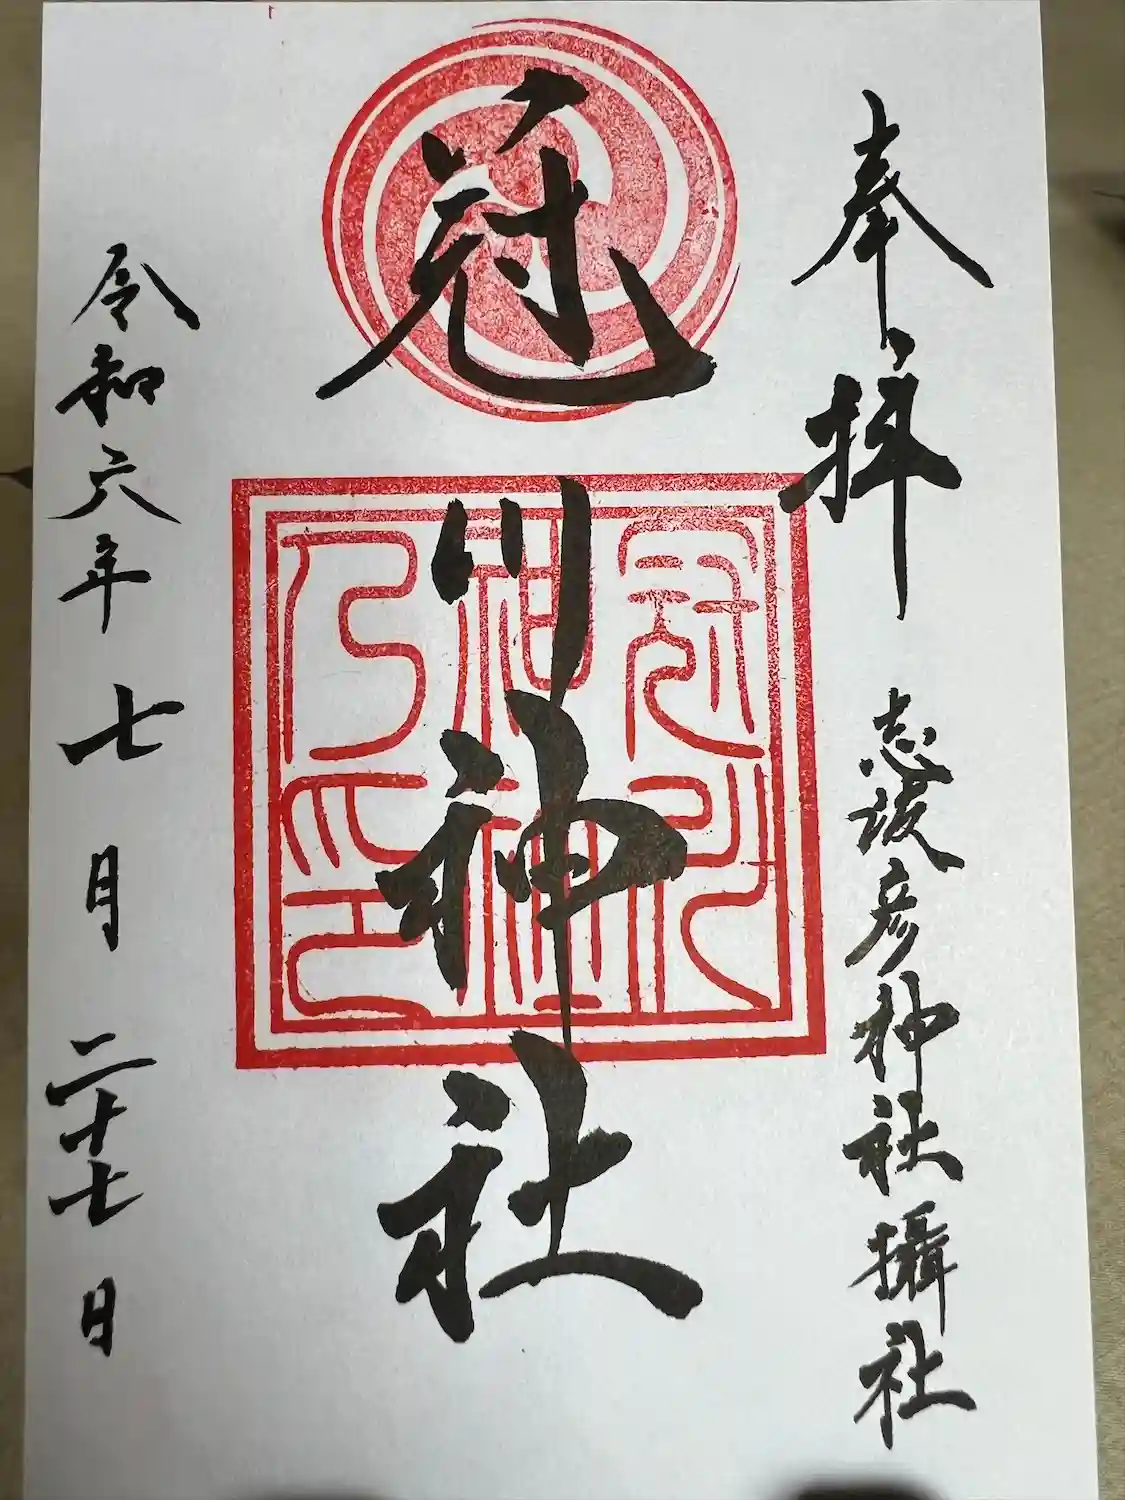 奉拝
志波彦神社攝社
冠川神社
冠川
神社
之印
令和六年七月二十七日